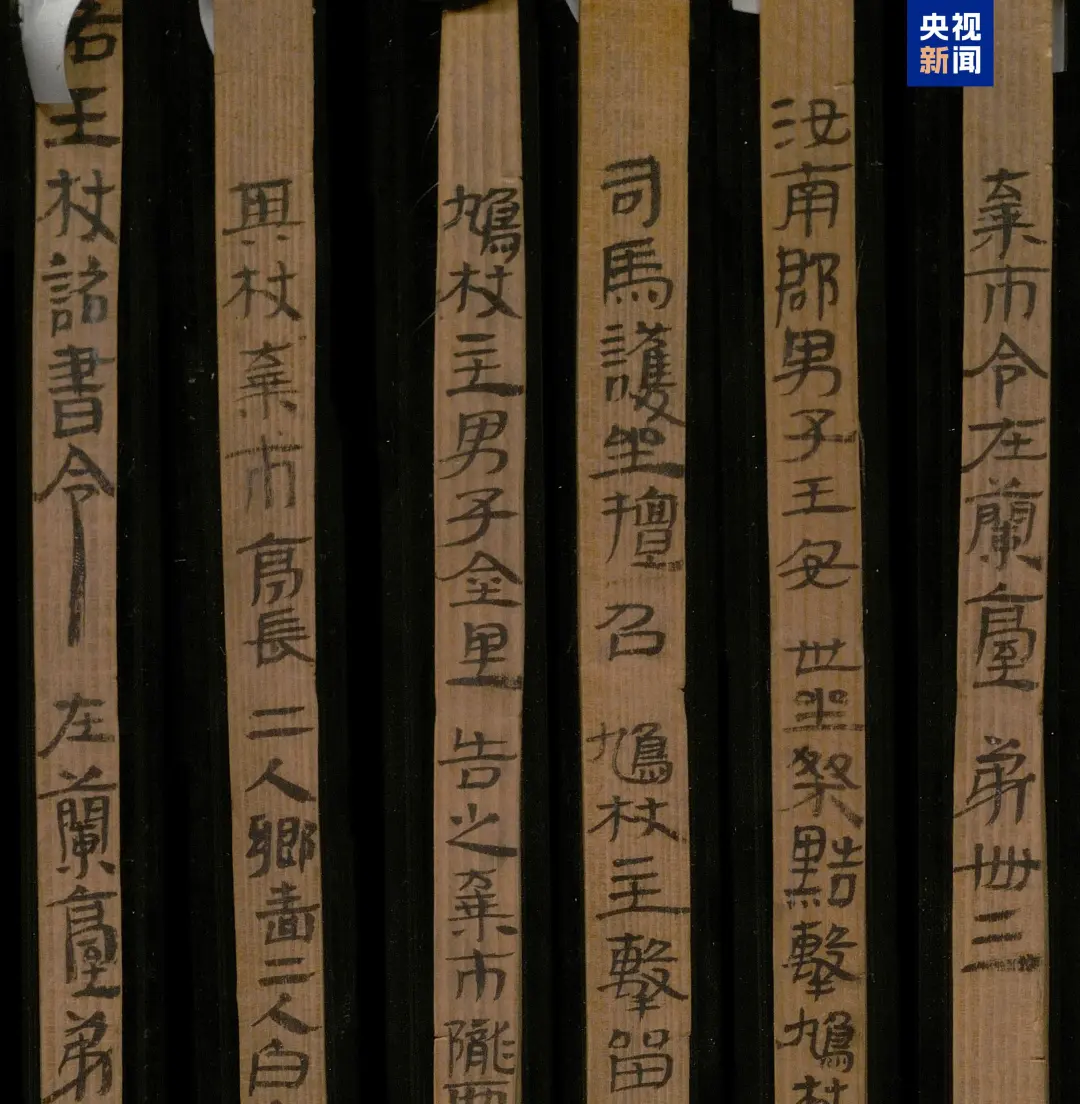 央视
新闻
棄市令在蘭臺 弟卌三
汝南郡男子王安 世坐桀黠擊鳩杖
司馬護坐擅召 鳩杖主擊留
鳩杖主男子金里 告之棄市隴西
與杖棄市亭長二人鄉嗇二人白
右王杖詔書令 在蘭臺弟